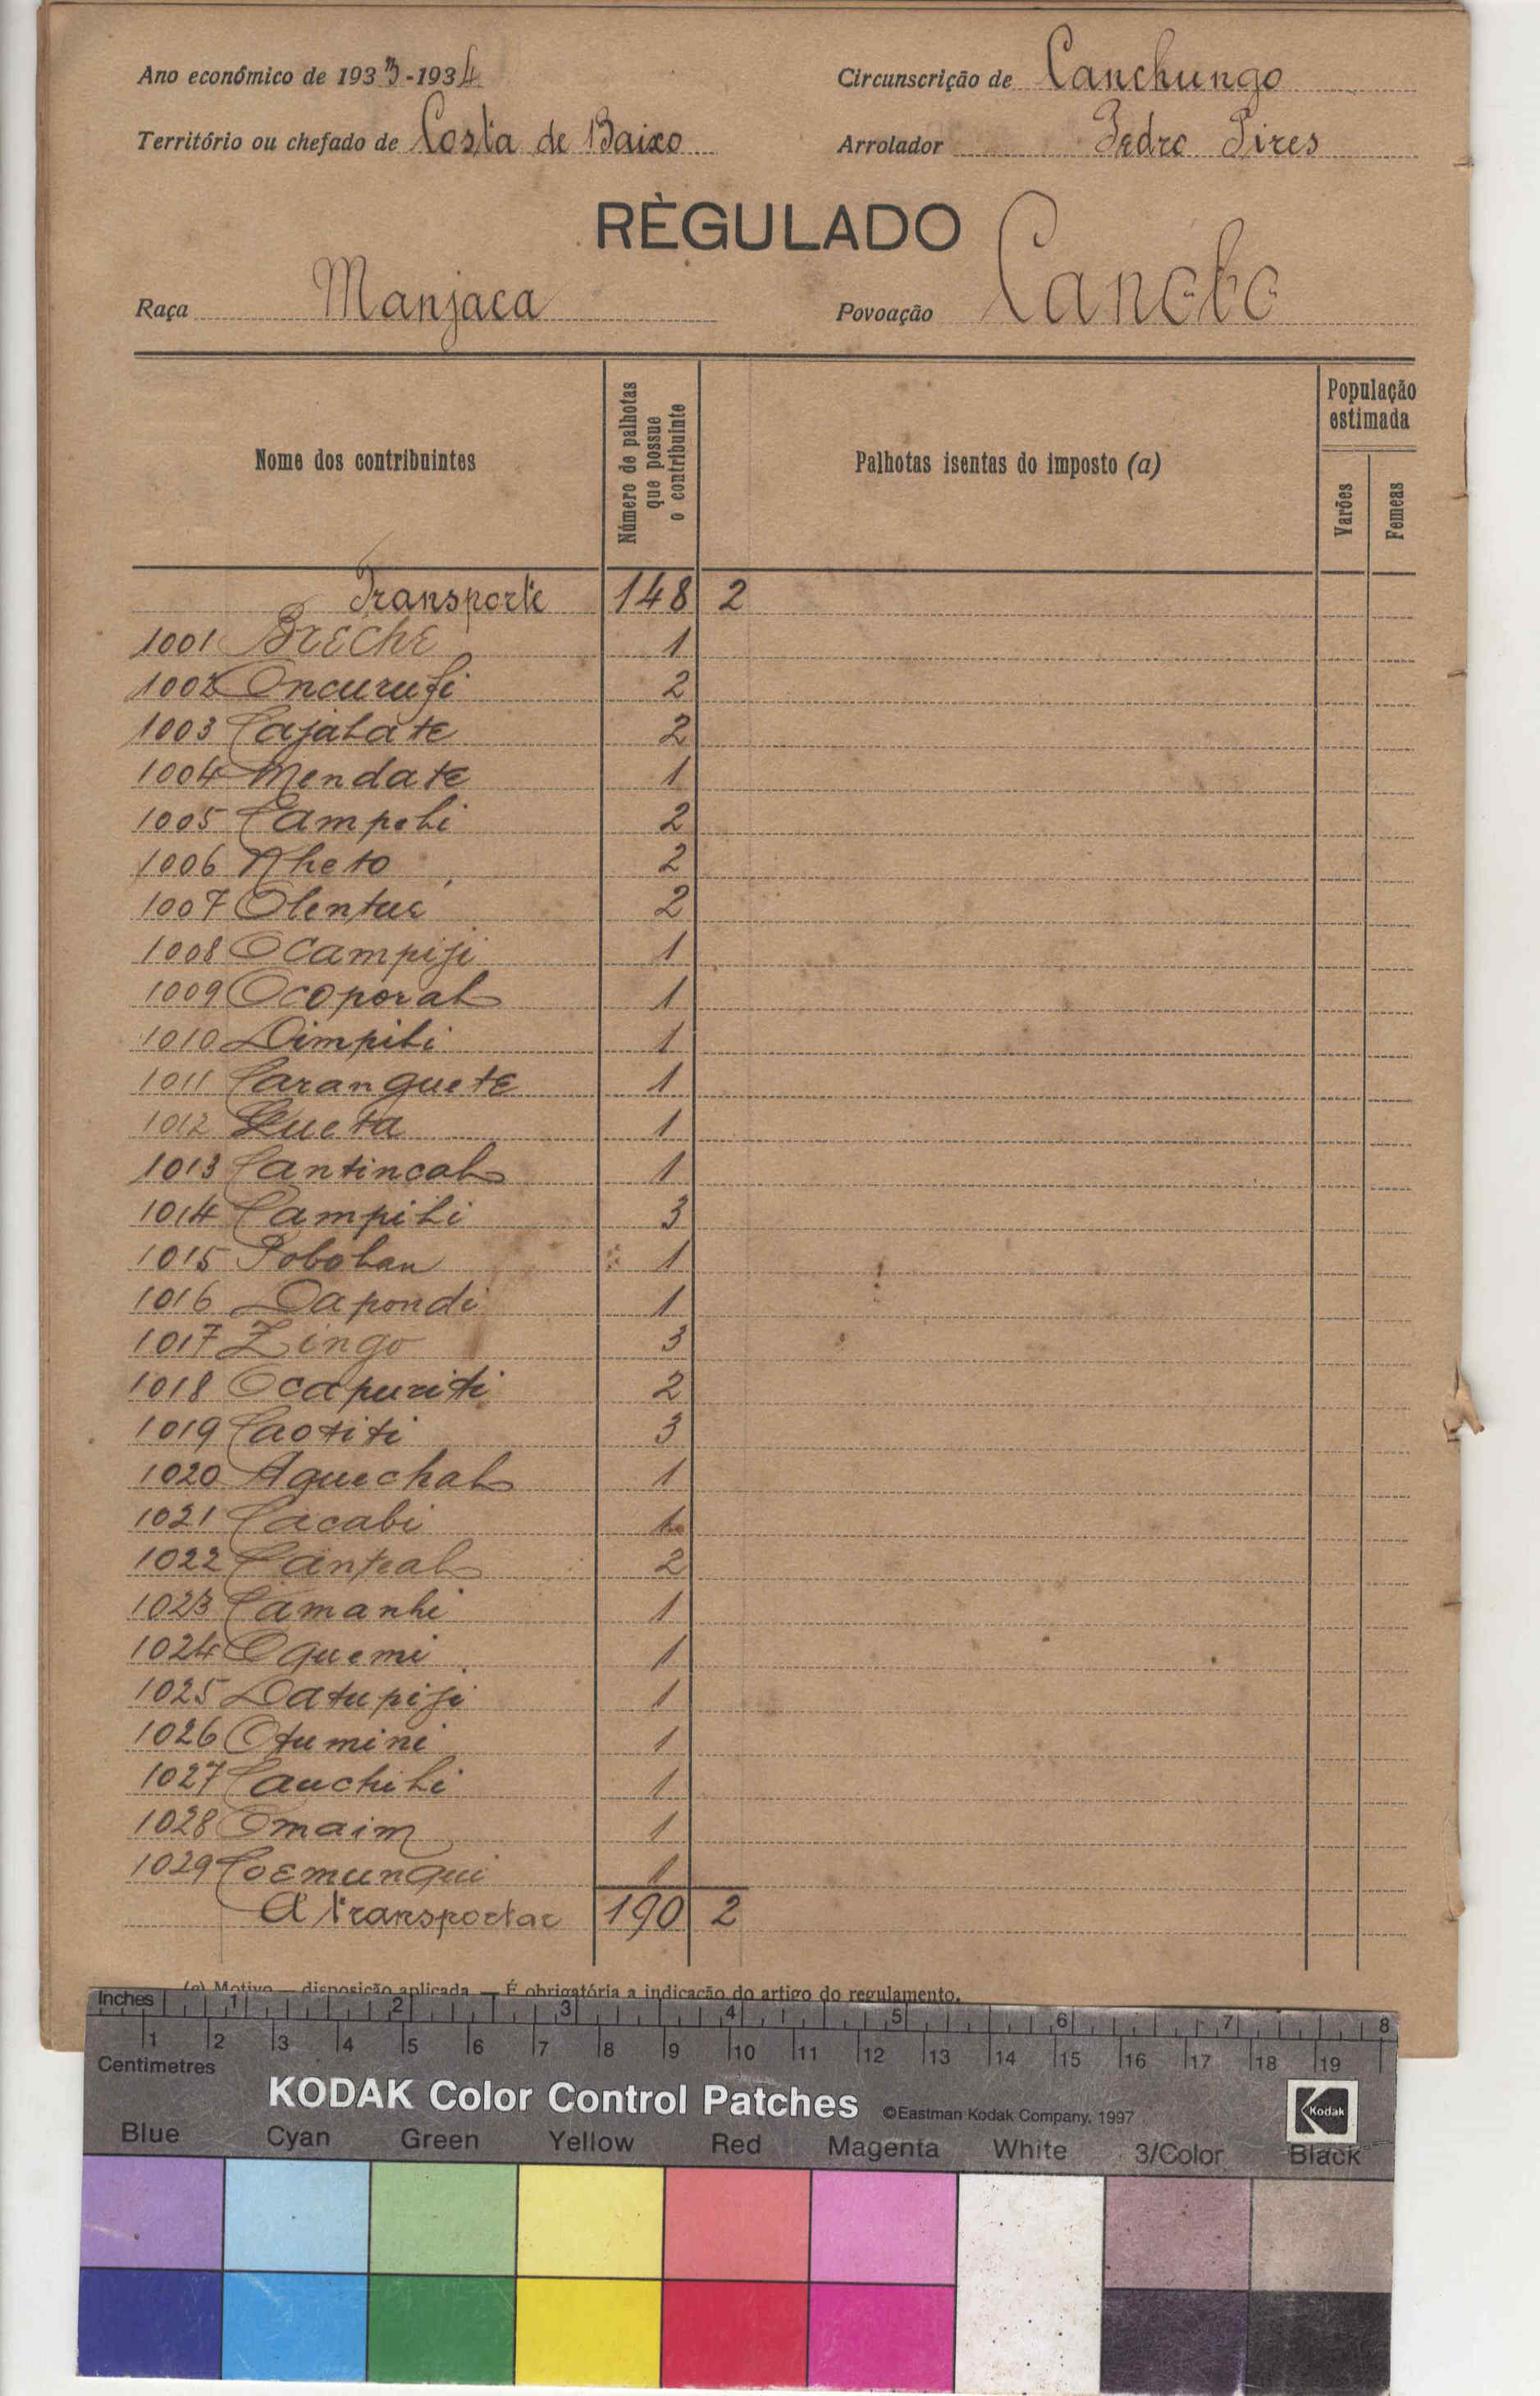 Ano económico de 1933-1934 Circunscrição de Canchungo
Território ou chefado de Costa de Baixo Arrolador Pedro Pires
RÈGULADO
Raça Manjaca Povoação Canobo
Nome dos contribuintes
Número de palhotas que possue o contribuinte
Palhotas isentas do imposto (a)
População estimada
Varões
Femeas
Transporte 148 2
1001 Breche 1
1002 Oncurufi 2
1003 Cajalate 2
1004 Mendate 1
1005 Campeli 2
1006 Nheto 2
1007 Olentue 2
1008 Ocampiji 1
1009 Ocoporal 1
1010 Dimpili 1
1011 Caranguete 1
1012 Queta 1
1013 Cantincal 1
1014 Campili 3
1015 Pobolan 1
1016 Dapondi 1
1017 Zingo 3
1018 Ocapuriti 2
1019 Caotiti 3
1020 Aguechal 1
1021 Cacabi 1
1022 Canteal 2
1023 Camanhi 1
1024 Oquemi 1
1025 Datupiji 1
1026 Otumini 1
1027 Cauchili 1
1028 Omaim 1
1029 Coemunqui 1
A transportar 190 2
(a) Motivo — disposição aplicada — É obrigatória a indicação do artigo do regulamento.
Inches 1 2 3 4 5 6 7 8
1 2 3 4 5 6 7 8 9 10 11 12 13 14 15 16 17 18 19
Centimetres
KODAK Color Control Patches ©Eastman Kodak Company, 1997 Kodak
Blue Cyan Green Yellow Red Magenta White 3/Color Black